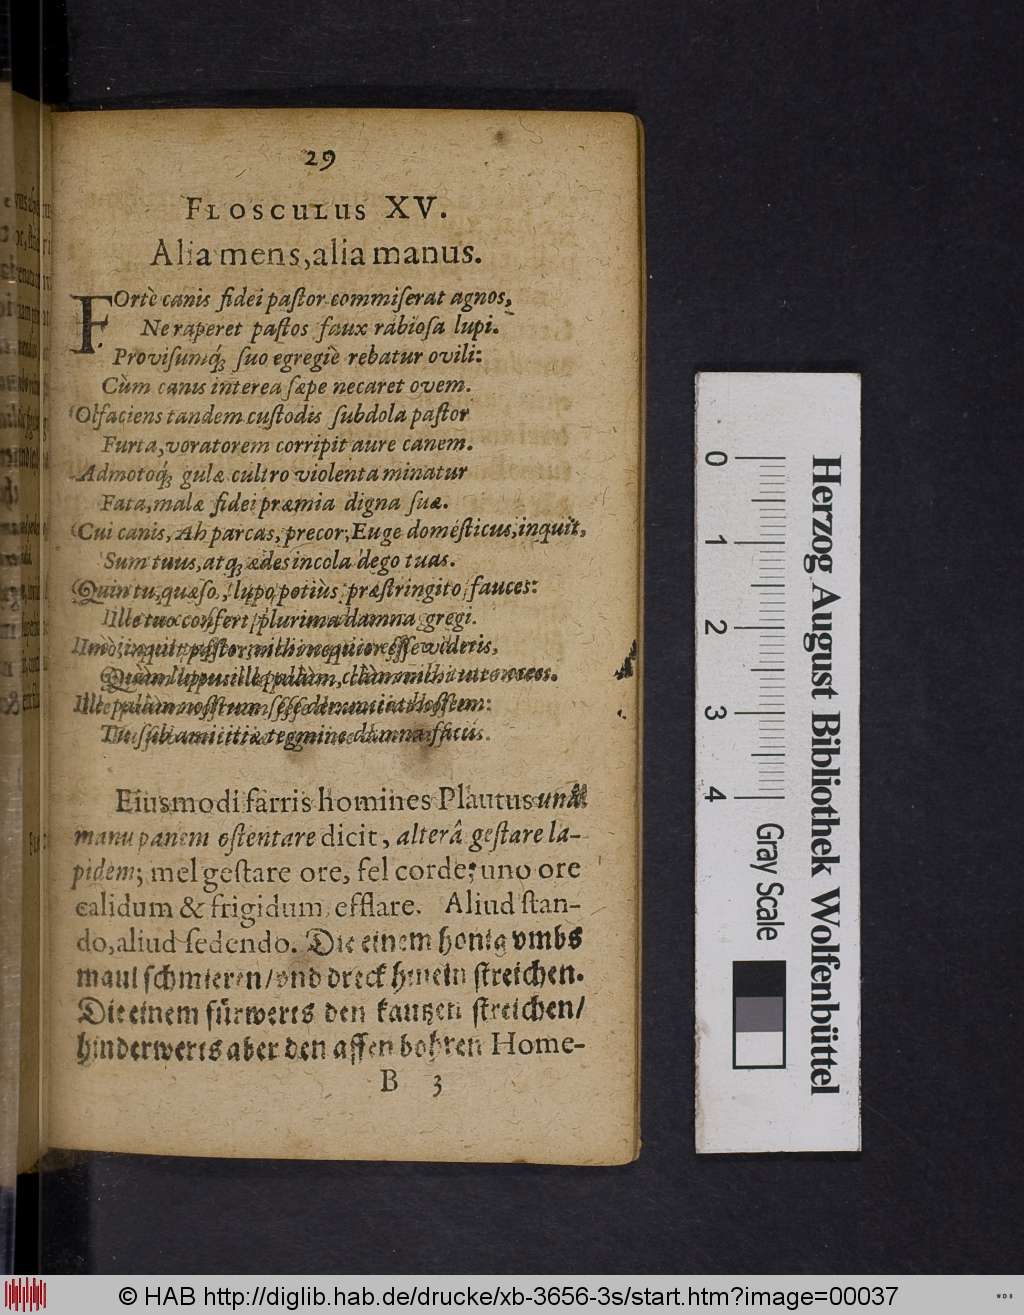 29
FLOSCULUS XV.
Alia mens, alia manus.
FOrtè canis fidei pastor commiserat agnos,
Ne raperet pastos faux rabiosa lupi.
Provisumq́; suo egregiè rebatur ovili:
Cùm canis interea sæpe necaret ovem.
Olfaciens tandem custodis subdola pastor
Furta, voratorem corripit aure canem.
Admotoq́; gulæ cultro violenta minatur
Fata, malæ fidei præmia digna suæ.
Cui canis, Ah parcas, precor; Euge domésticus, inquit,
Sum tuus, atq́; ædes incola dego tuas.
Quin tu, quæso, lupo potiùs præstringito fauces:
Ille tuo confert plurima damna gregi.
Imò, inquit pastor, mihi nequior esse videris,
Quàm lupus: ille palàm, clàm mihi tu noces.
Ille palàm nostrum sese denunciat hostem:
Tu sub amicitiæ tegmine damna facis.
Eiusmodi farris homines Plautus unâ
manu panem ostentare dicit, alterâ gestare la-
pidem; mel gestare ore, fel corde; uno ore
calidum & frigidum efflare. Aliud stan-
do, aliud sedendo. Die einem honig vmbs
maul schmieren/ vnd dreck hinein streichen.
Die einem fürwerts den kautzen streichen/
hinderwerts aber den affen bohren Home-
B 3
Herzog August Bibliothek Wolfenbüttel
0 1 2 3 4 Gray Scale
© HAB http://diglib.hab.de/drucke/xb-3656-3s/start.htm?image=00037